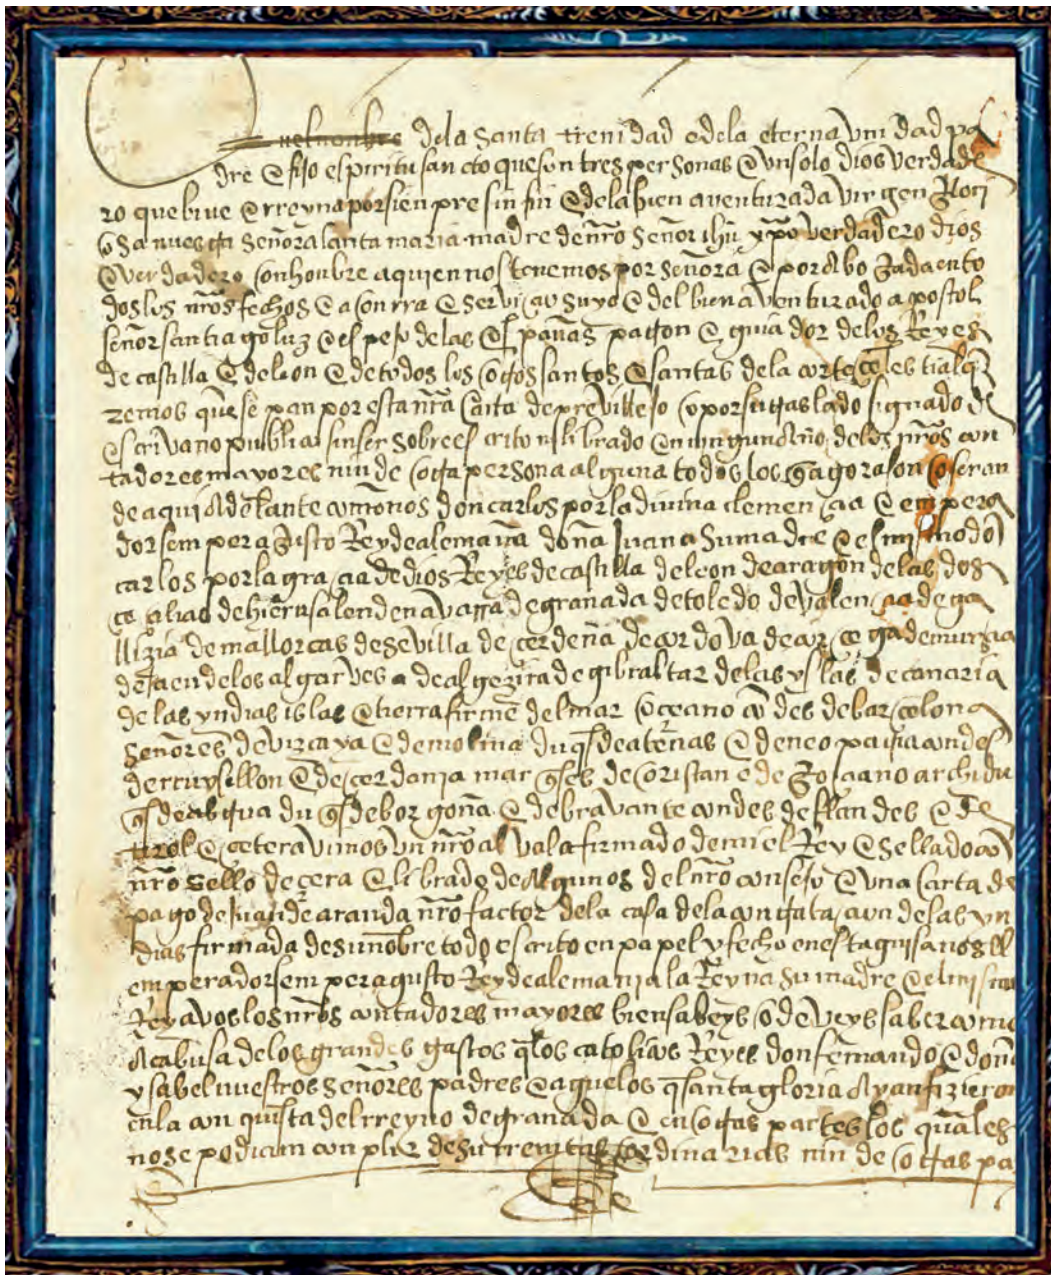 nelnonbre dela santa trenidad e dela eterna vnidad pa
dre e fijo espiritu sancto que son tres personas e vn solo dios verdade
ro que biue e rreyna por sienpre sin fin e dela bien aventurada virgen glori
osa nuestra señora santa maria madre de nro señor ihu xpo verdadero dios
e verdadero onhonbre a quien nos tenemos por señora e por abogada en to
dos los nros fechos e a onrra e seruiçio suyo e del bien aventurado apostol
señor santiago luz e espejo delas españas patron e guiador delos Reyes
de castilla e de leon e de todos los otros santos e santas dela corte çelestial q
remos que sepan por esta nra carta de preuillejo o por su traslado signado de
escriuano publico sin ser sobreescrito ni librado en ningund año delos nros con
tadores mayores nin de otra persona alguna todos los q agora son o seran
de aqui adelante como nos don carlos por la diuina clemençia e empera
dor semper agusto Rey de alemaña doña Juana su madre e el mismo don
carlos por la graçia de dios Reyes de castilla de leon de aragon delas dos
çeçilias de hierusalen de navarra de granada de toledo de valençia de ga
llizia de mallorcas de sevilla de çerdeña de cordova de corçega de murçia
de jaen delos algarves de algezira de gibraltar delas yslas de canaria
de las yndias islas e tierra firme del mar oçeano condes de barçelona
señores de vizcaya e de molina duqs de atenas e de neopatria condes
de rruysellon e de çerdania marqses de oristan e de goçiano archidu
qs de abstria duqs de borgoña e de bravante condes de flandes e de
tirol e çetera vimos vn nro alvala firmado de mi el Rey e sellado con
nro sello de çera e librado de algunos del nro consejo e vna carta de
pago de Juan de aranda nro factor dela casa dela contrataçion de las yn
dias firmada de su nonbre todo escrito en papel y fecho en esta guisa nos el
emperador semper agusto Rey de alemania la Reyna su madre e el mismo
Rey a vos los nros contadores mayores bien sabeys o deveys saber como
a cabusa delos grandes gastos q los catolicos Reyes don fernando e doña
ysabel nuestros señores padres e aguelos q santa gloria ayan fizieron
en la conquista del rreyno de granada e en otras partes los quales
no se podian conplir de su rrentas ordinarias nin de otras pa